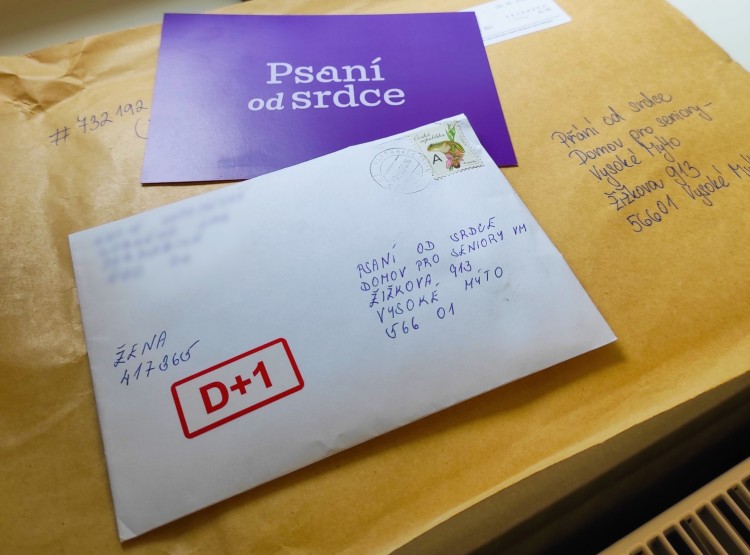 Psaní
od srdce
# 732192
Přání od srdce
Domov pro seniory -
Vysoké Mýto
Žižkova 913
56601 Vysoké
Česká
republika
A
PSANÍ OD SRDCE
DOMOV PRO SENIORY VM
ŽIŽKOVA 913
VYSOKÉ MÝTO
566 01
ŽENA
417365
D+1